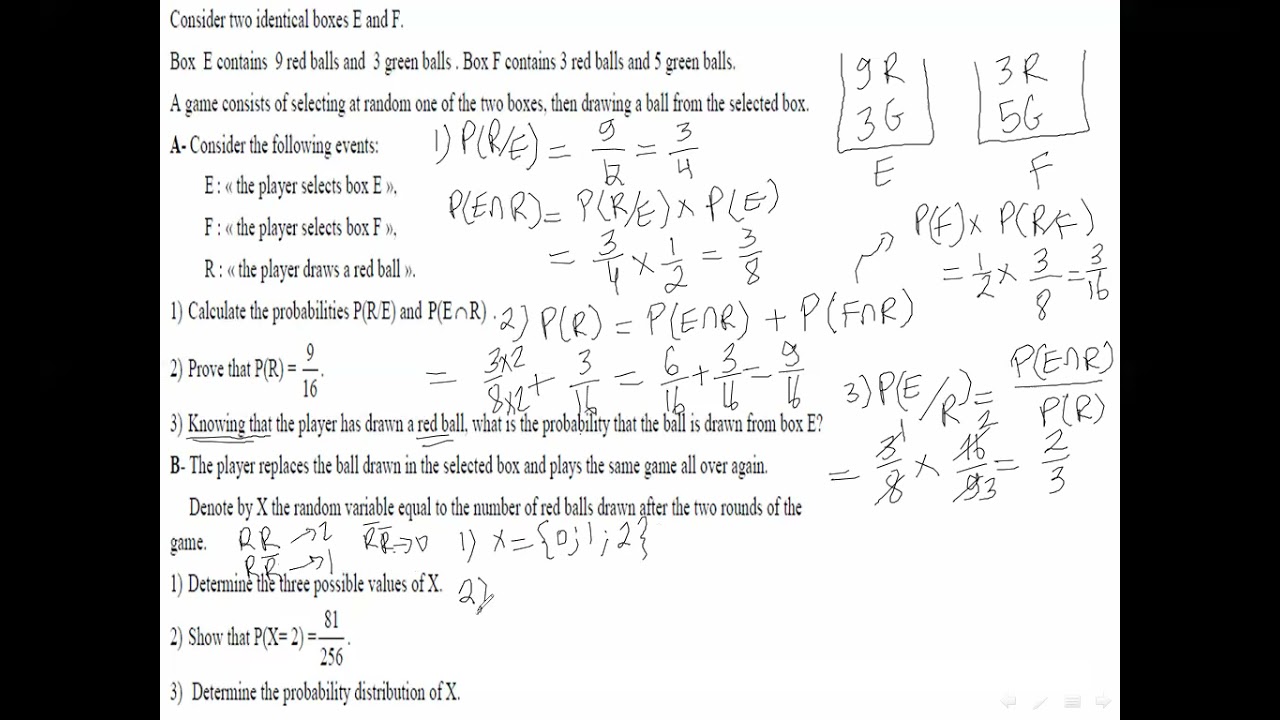 Consider two identical boxes E and F.
Box E contains 9 red balls and 3 green balls . Box F contains 3 red balls and 5 green balls.
A game consists of selecting at random one of the two boxes, then drawing a ball from the selected box.
A- Consider the following events:
E : « the player selects box E »,
F : « the player selects box F »,
R : « the player draws a red ball ».
1) Calculate the probabilities P(R/E) and P(E∩R) .
2) Prove that P(R) = 9/16.
3) Knowing that the player has drawn a red ball, what is the probability that the ball is drawn from box E?
B- The player replaces the ball drawn in the selected box and plays the same game all over again.
Denote by X the random variable equal to the number of red balls drawn after the two rounds of the
game.
1) Determine the three possible values of X.
2) Show that P(X= 2) = 81/256.
3) Determine the probability distribution of X.
9R
3G
E
3R
5G
F
1) P(R/E) = 9/12 = 3/4
P(E∩R) = P(R/E) × P(E)
= 3/4 × 1/2 = 3/8
P(F) × P(R/F)
= 1/2 × 3/8 = 3/16
2) P(R) = P(E∩R) + P(F∩R)
= 3×2/8×2 + 3/16 = 6/16 + 3/16 = 9/16
3) P(E/R) = P(E∩R)/P(R)
= 3/8 × 16/9 = 2/3
1
2
3
RR → 2
RR̅ → 1
R̅R̅ → 0
1) X = {0;1;2}
2)